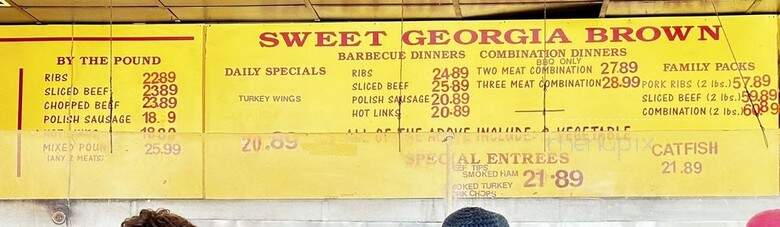 SWEET GEORGIA BROWN
BY THE POUND
RIBS 22.89
SLICED BEEF 23.89
CHOPPED BEEF 23.89
POLISH SAUSAGE 18. 9
HOT LINKS 18.89
MIXED POUN 25.99
(ANY 2 MEATS)
DAILY SPECIALS
TURKEY WINGS
20.89
BARBECUE DINNERS
RIBS 24.89
SLICED BEEF 25.89
POLISH SAUSAGE 20.89
HOT LINKS 20.89
COMBINATION DINNERS
BBQ ONLY
TWO MEAT COMBINATION 27.89
THREE MEAT COMBINATION 28.99
FAMILY PACKS
PORK RIBS (2 lbs.) 57.89
SLICED BEEF (2 lbs.) 59.89
COMBINATION (2 lbs.) 60.89
ALL OF THE ABOVE INCLUDE: 2 VEGETABLE
SPECIAL ENTREES
EF TIPS
SMOKED HAM 21.89
OKED TURKEY
RK CHOPS
CATFISH
21.89